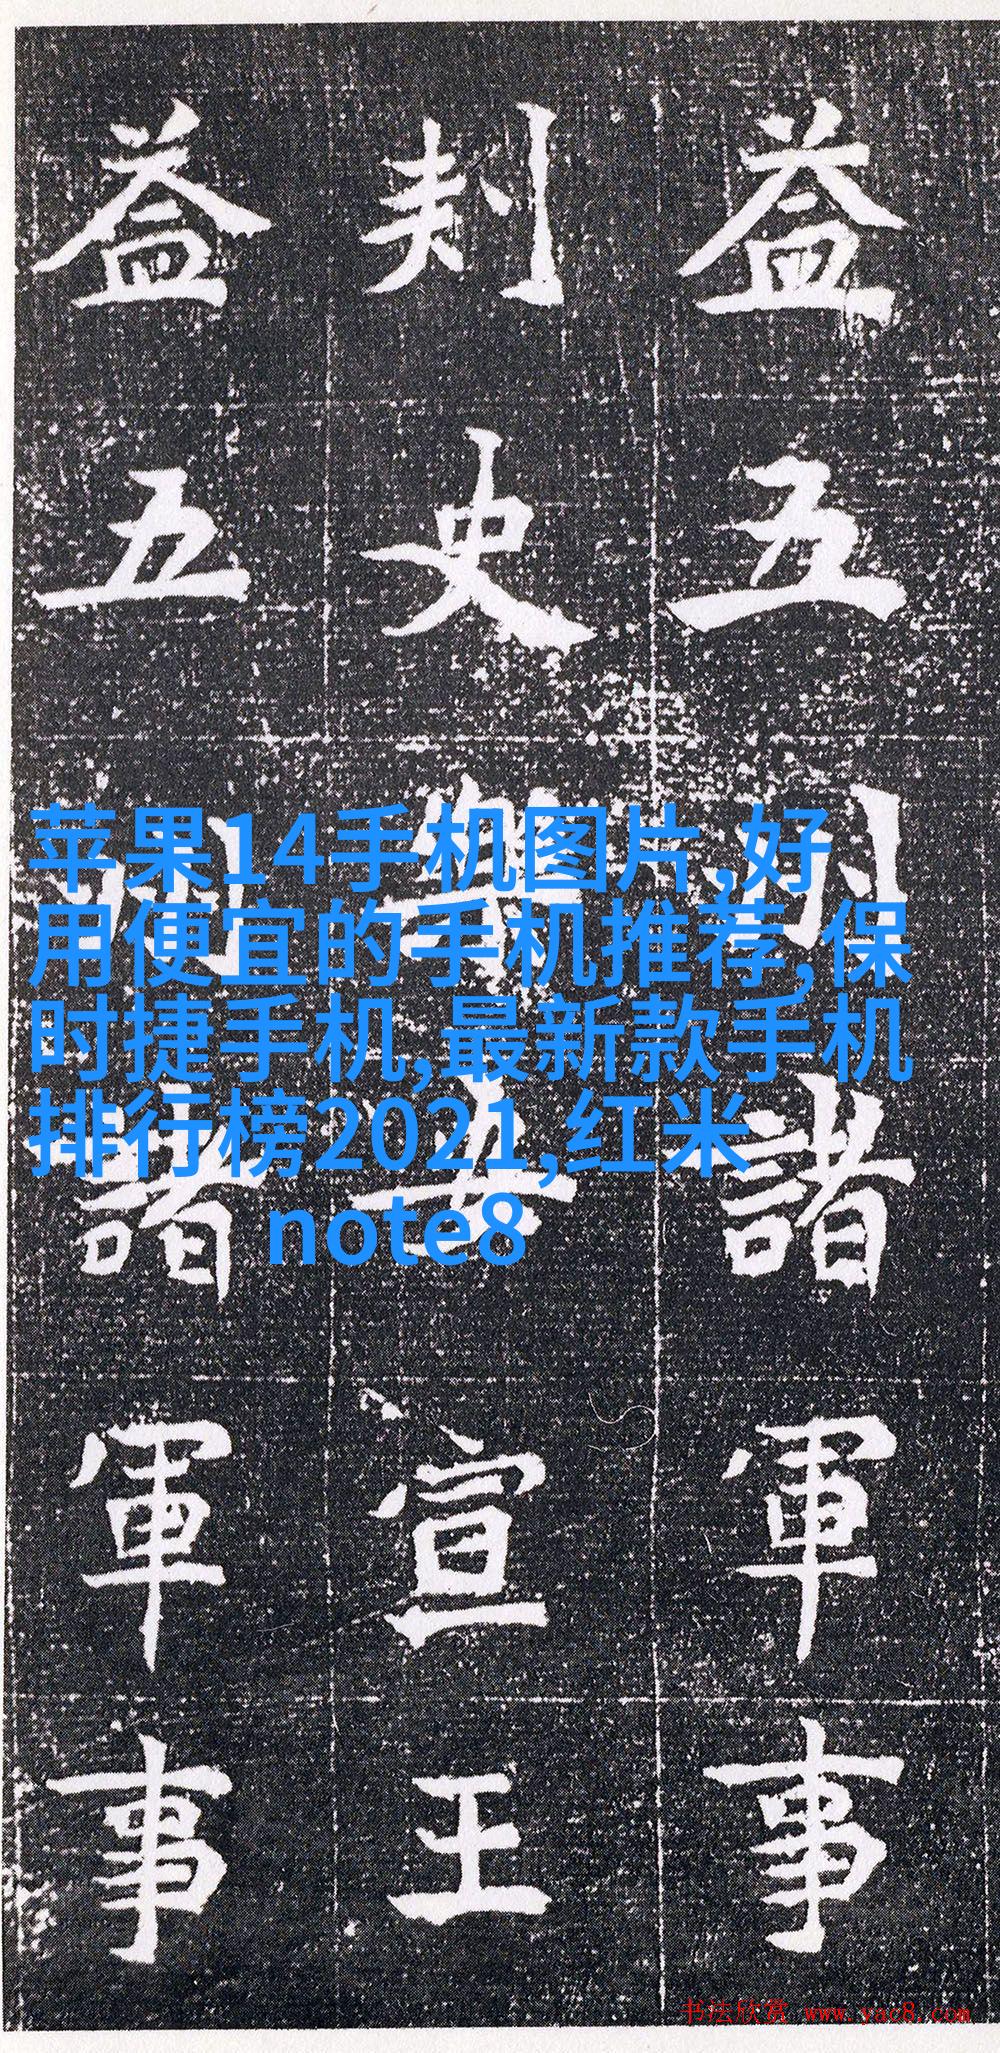 益五州諸軍事
刾史樂安宣王
益五州諸軍事
苹果14手机图片,好
用便宜的手机推荐,保
时捷手机,最新款手机
排行榜2021,红米
note8
书法欣赏 www.yac8.com